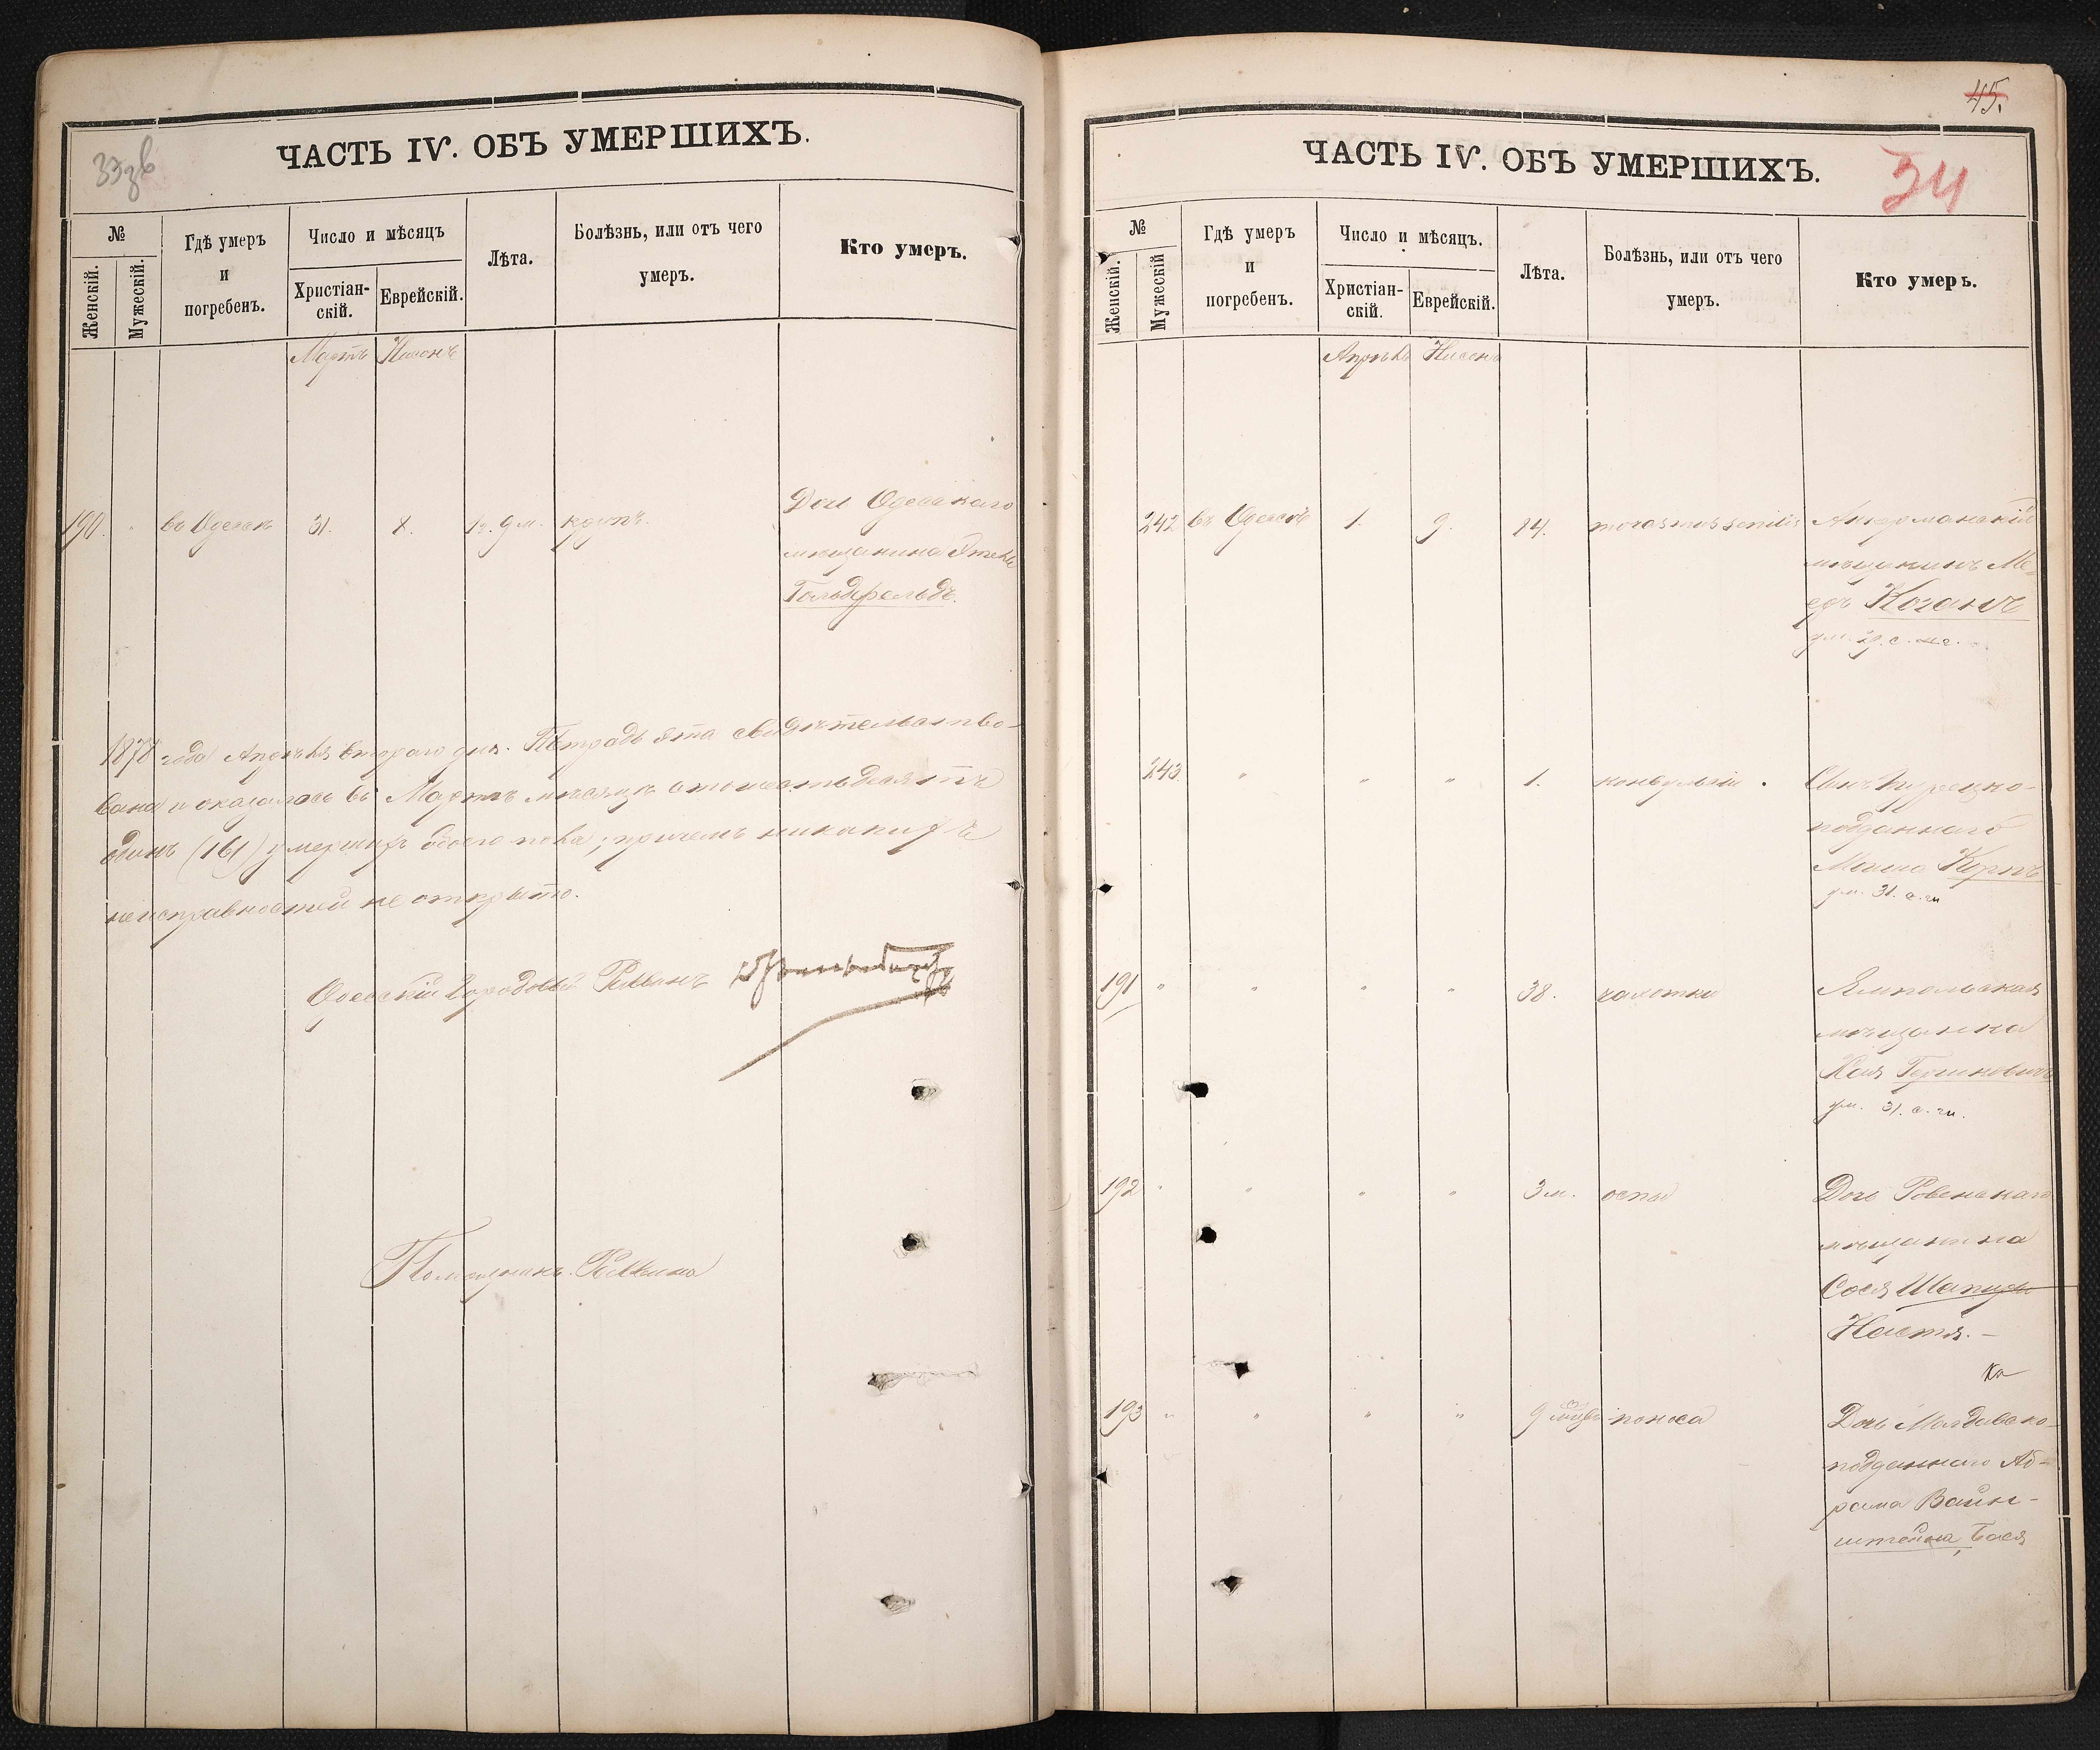 ЧАСТЬ IV. ОБЪ УМЕРШИХЪ.
№
Женскій.
Мужескій.
Гдѣ умеръ
и
погребенъ.
Число и мѣсяцъ
Христіан-
скій.
Еврейскій.
Лѣта.
Болѣзнь, или отъ чего
умеръ.
Кто умеръ.
Мартъ Нисонъ
190. въ Одессѣ 31. 8. 1 г. 9 м. крупъ. Дочь Одесскаго
мѣщанина
Гольдфельдъ.
1878 года Апрѣля втораго дня. Тетрадь эта свидѣтельство-
вана и оказалось въ Мартѣ мѣсяцѣ сто шестьдесятъ
одинъ (161) умершихъ обоего пола; причемъ никакихъ
неисправностей не открыто.
Одесскій Городовой Раввинъ
Помощникъ Раввина
45.
ЧАСТЬ IV. ОБЪ УМЕРШИХЪ.
34
№
Женскій.
Мужескій
Гдѣ умеръ
и
погребенъ.
Число и мѣсяцъ.
Христіан-
скій.
Еврейскій.
Лѣта.
Болѣзнь, или отъ чего
умеръ.
Кто умеръ.
Апрѣль Нисонъ
242 въ Одессѣ 1. 9. 84. morasmus senilis Аккерманскій
мѣщанинъ Ме-
еръ Коганъ
243 " " " 1. конвульсіи. Сынъ Турецко-
подданнаго
ум. 31. с. м
191 " " " " 38. чахотки Ямпольская
мѣщанка
Хая Гершковичъ
ум. 31. с. м.
192 " " " " 3 м. оспы Дочь Ровенскаго
мѣщанина
Сося Шапиро
Настя. —
ка
193 " " " " 9 поноса Дочь Молдавско-
подданнаго Аб-
рама Вайн-
штейна, Бася